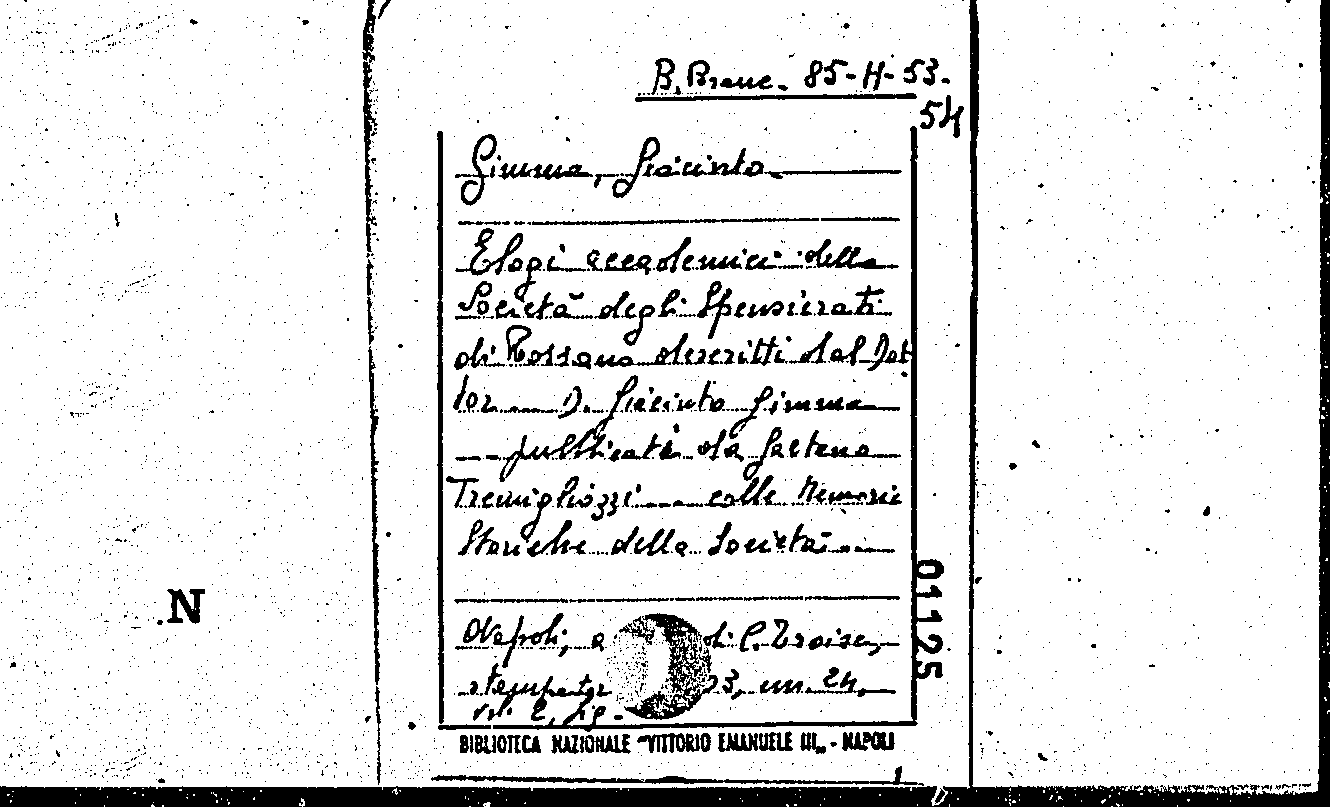 B. Branc. 85-H-53.
54
Gimma, Giacinto.
Elogi accademici della
Società degli Spensierati
di Rossano descritti dal Dot
tor ... D. Giacinto Gimma
... pubblicati da Gaetano
Tremigliozzi ... colle Memorie
Storiche della Società ...
01125
N
Napoli, a di C. Troise,
stampator 3, cm. 24,
voll. 2, fig.
BIBLIOTECA NAZIONALE "VITTORIO EMANUELE III" - NAPOLI
1